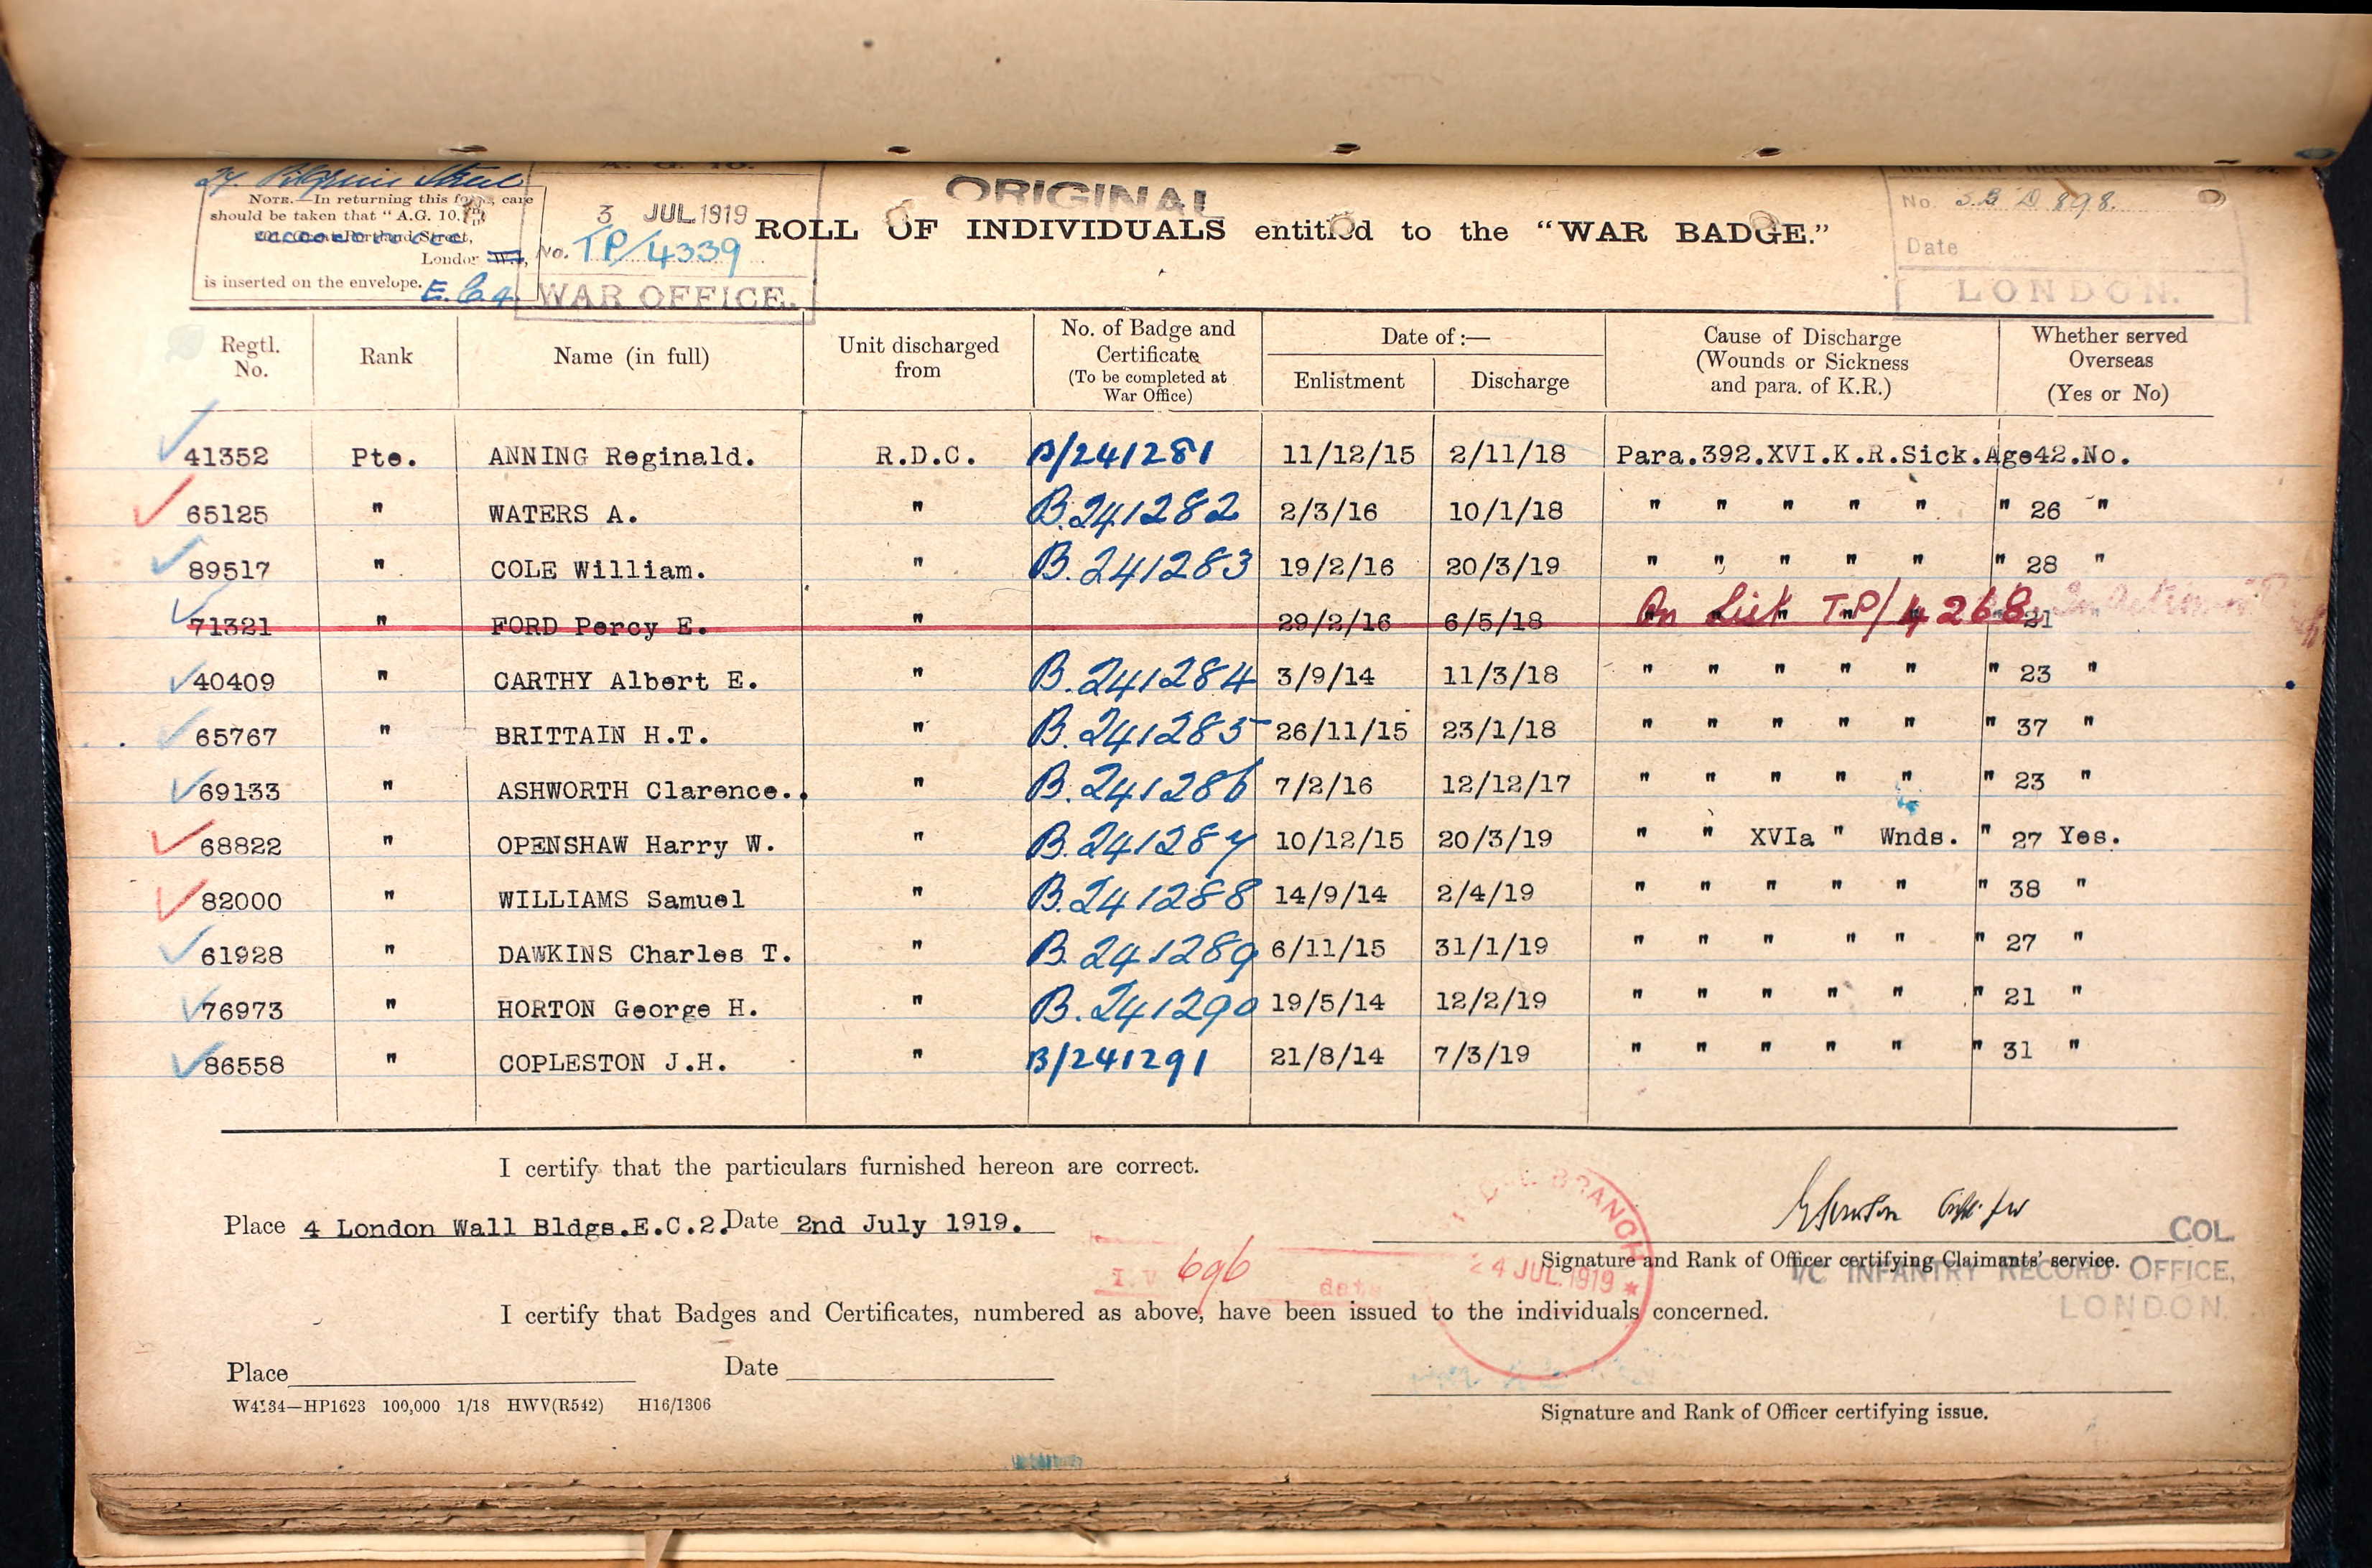 27. Pilgrim Street
NOTE.—In returning this form, care
should be taken that "A.G. 10.
Street,
London W.1,
is inserted on the envelope. E.C.4.
A. G. 10.
3 JUL 1919
No. TP/4339
WAR OFFICE.
ORIGINAL
ROLL OF INDIVIDUALS entitled to the "WAR BADGE."
INFANTRY RECORD OFFICE
No. S.B.D 898.
Date
LONDON.
Regtl. No. Rank Name (in full) Unit discharged from No. of Badge and Certificate (To be completed at War Office) Date of:— Enlistment Discharge Cause of Discharge (Wounds or Sickness and para. of K.R.) Whether served Overseas (Yes or No)
41352 Pte. ANNING Reginald. R.D.C. B/241281 11/12/15 2/11/18 Para.392.XVI.K.R.Sick.Age42.No.
65125 " WATERS A. " B.241282 2/3/16 10/1/18 " " " " " " 26 "
89517 " COLE William. " B.241283 19/2/16 20/3/19 " " " " " " 28 "
71321 " FORD Percy E. " 29/2/16 6/5/18 On List TP/4268 " " " " " " 21 "
40409 " CARTHY Albert E. " B.241284 3/9/14 11/3/18 " " " " " " 23 "
65767 " BRITTAIN H.T. " B.241285 26/11/15 23/1/18 " " " " " " 37 "
69133 " ASHWORTH Clarence. " B.241286 7/2/16 12/12/17 " " " " " " 23 "
68822 " OPENSHAW Harry W. " B.241287 10/12/15 20/3/19 " " XVIa " Wnds. " 27 Yes.
82000 " WILLIAMS Samuel " B.241288 14/9/14 2/4/19 " " " " " " 38 "
61928 " DAWKINS Charles T. " B.241289 6/11/15 31/1/19 " " " " " " 27 "
76973 " HORTON George H. " B.241290 19/5/14 12/2/19 " " " " " " 21 "
86558 " COPLESTON J.H. " B/241291 21/8/14 7/3/19 " " " " " " 31 "
I certify that the particulars furnished hereon are correct.
Place 4 London Wall Bldgs.E.C.2. Date 2nd July 1919.
COL.
Signature and Rank of Officer certifying Claimants' service.
I/C INFANTRY RECORD OFFICE,
LONDON.
BRANCH
24 JUL 1919
696
date
I certify that Badges and Certificates, numbered as above, have been issued to the individuals concerned.
Place Date
W4134—HP1623 100,000 1/18 HWV(R542) H16/1306
Signature and Rank of Officer certifying issue.